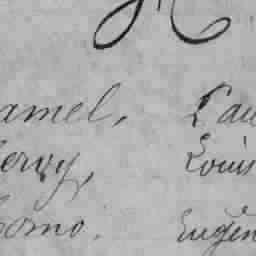 H
amel, Pau
ervy, Louis
omo. Eugèn